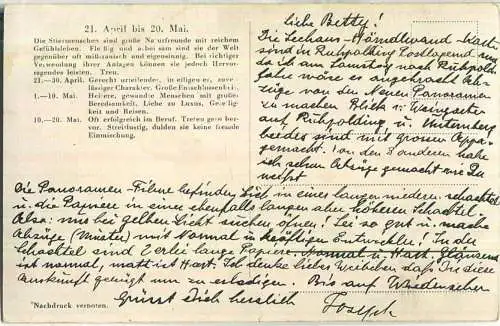 21. April bis 20. Mai.
Die Stiermenschen sind große Naturfreunde mit reichem
Gefühlsleben. Fleißig und arbeitsam sind sie der Welt
gegenüber oft mißtrauisch und eigensinnig. Bei richtiger
Verwertung ihrer Anlagen können sie jedoch Hervor-
ragendes leisten. Treu.
21.—30. April. Gerecht urteilender, intelligenter, zuver-
lässiger Charakter. Große Entschlussenheit.
1.—10. Mai. Heitere, gewandte Menschen mit großer
Beredsamkeit. Liebe zu Luxus, Geselligkeit
und Reisen.
10.—20. Mai. Oft erfolgreich im Beruf. Treuer Bewer-
ber. Streitlustig, dulden sie keine fremde
Einmischung.
Liebe Betty!
Die Seehaus-Hörndlwand-Karten
sind in Ruhpolding Postlagernd
da ich am Samstag nach Ruhpolding
fahre wäre es angebracht Ab-
züge von den Neuen Panoramen
zu machen Blick v.
auf Ruhpolding u. Unternberg
beides sind mit grossen Appa.
gemacht! von den 3 anderen habe
ich schon Abzüge gemacht wie Du
weißt
Die Panoramen-Filme befinden sich in einer langen niederen Schachtel
u. die Papiere in einer ebenfalls langen aber höheren Schachtel
Also: nur bei gelben Licht suchen öffnen! Sei so gut u. mache
Abzüge (Muster) mit Normal in kräftigen Entwickler! In der
Schachtel sind 2 erlei lange Papiere Normal u. Hart. Glänzend
ist normal, matt ist Hart. Ich denke liebes Weiberl das Dir diese
Auskunft genügt um zu erledigen. Bis auf Wiedersehen
Grüsst Dich herzlich
Josef
*Nachdruck verboten.